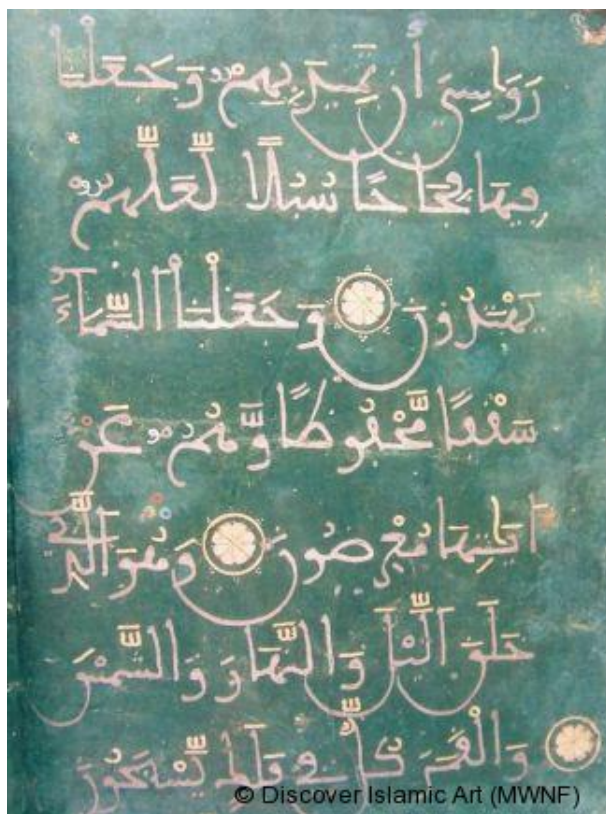 رَوَاسِيَ أَن تَمِيدَ بِهِمْ وَجَعَلْنَا
فِيهَا فِجَاجًا سُبُلًا لَّعَلَّهُمْ
يَهْتَدُونَ وَجَعَلْنَا السَّمَآءَ
سَقْفًا مَّحْفُوظًا وَّهُمْ عَنْ
ايَٰتِهَا مُعْرِضُونَ وَهُوَ الَّذِي
خَلَقَ الَّيْلَ وَالنَّهَارَ وَالشَّمْسَ
وَالْقَمَرَ كُلٌّ فِي فَلَكٍ يَّسْبَحُونَ
© Discover Islamic Art (MWNF)